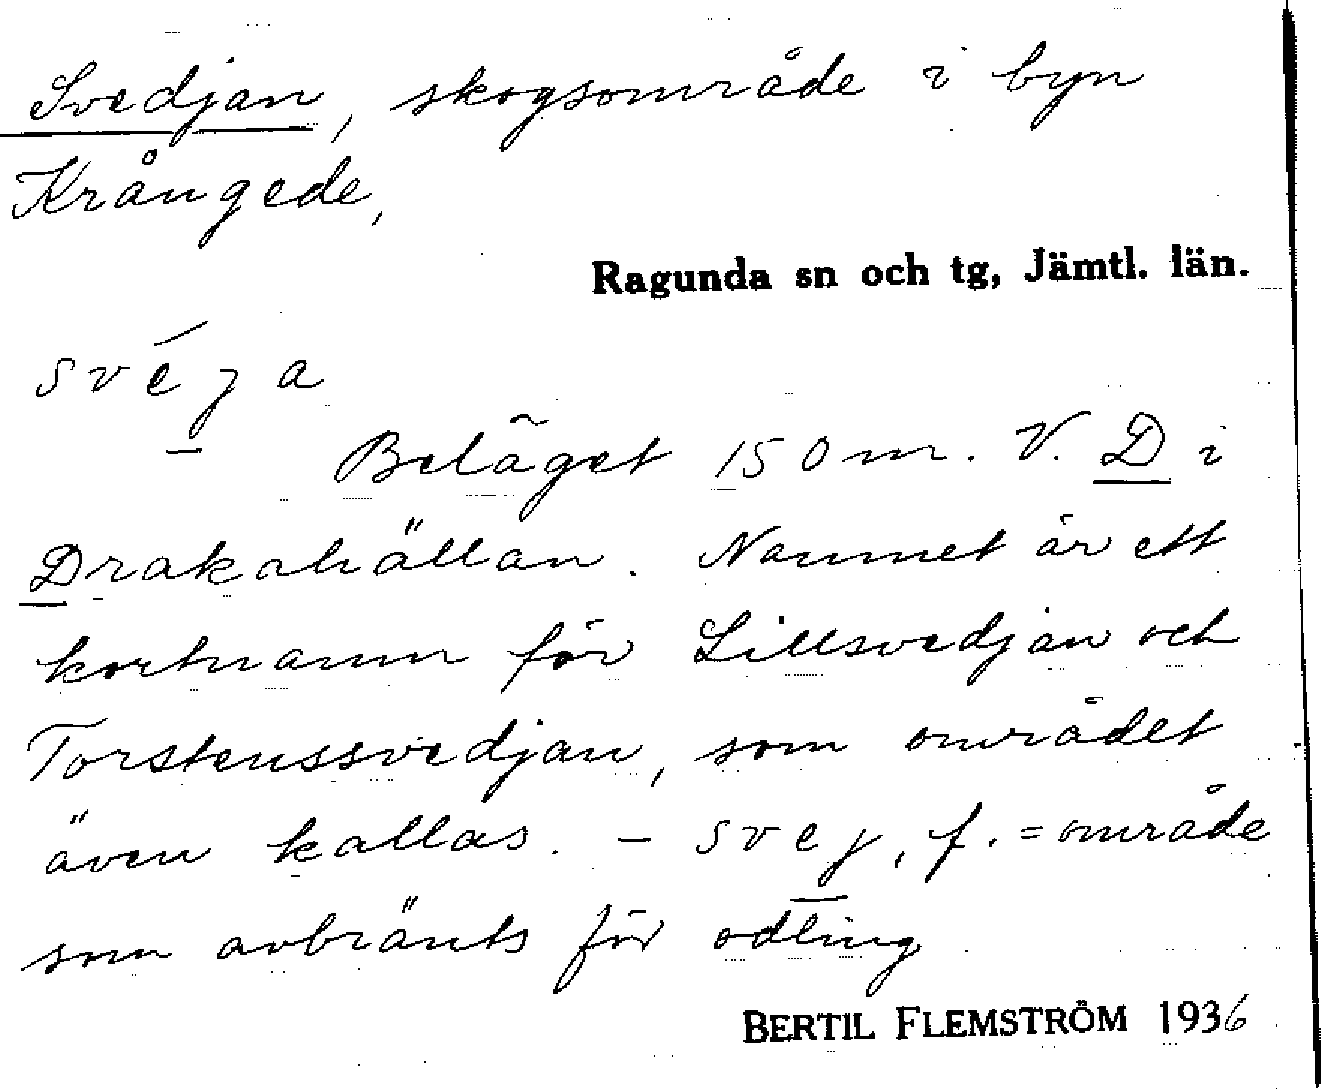 Svedjan, skogsområde i byn
Krångede,
Ragunda sn och tg, Jämtl. län.
svéja
Beläget 150 m. V. D i
Drakahällan. Namnet är ett
kortnamn för Lillsvedjan och
Torstenssvedjan, som området
även kallas. – svej, f. = område
som avbränts för odling
BERTIL FLEMSTRÖM 1936